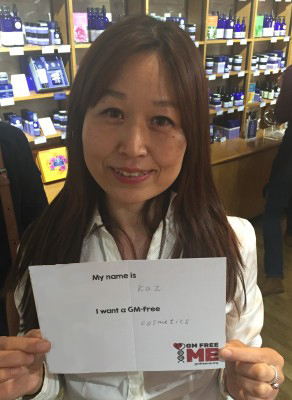 My name is
Kaz
I want a GM-free
cosmetics
GM FREE
ME